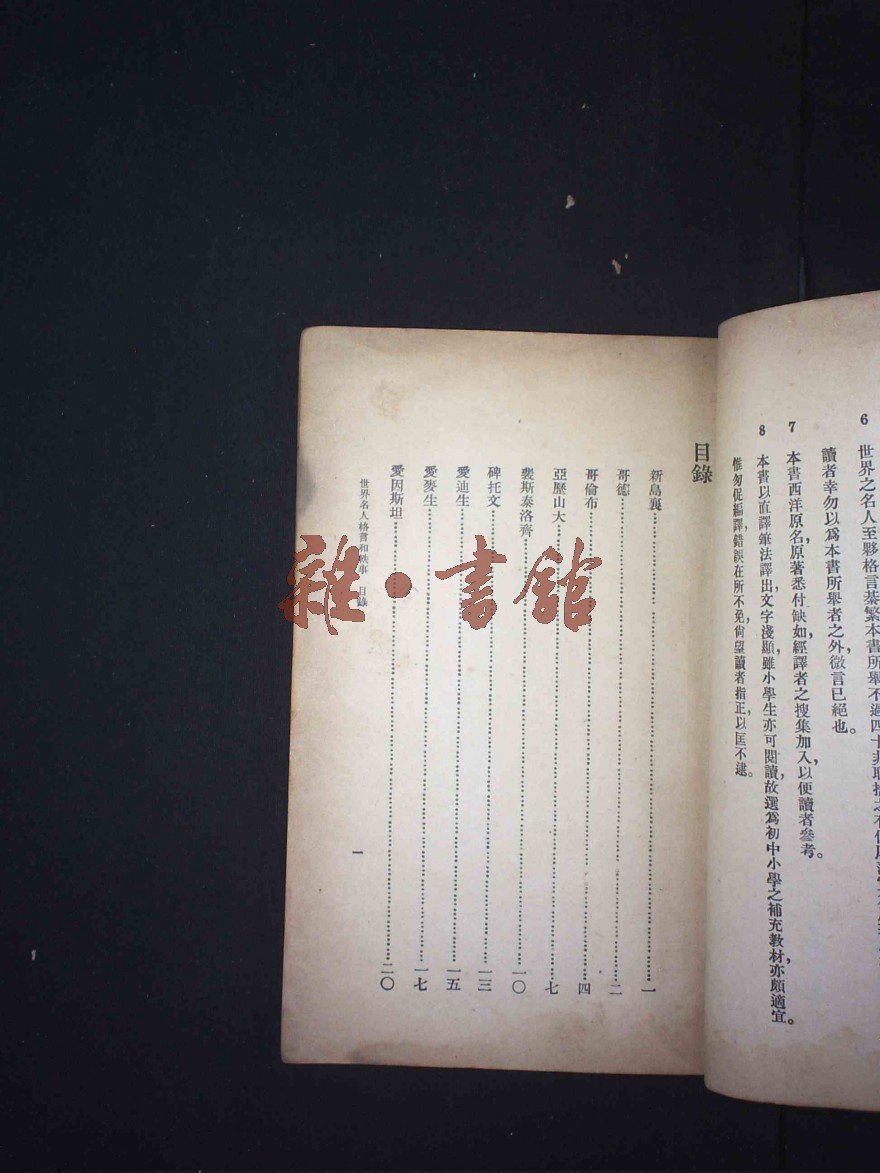 6 世界之名人至夥格言綦繁本書所舉不過四十
讀者幸勿以爲本書所舉者之外,微言已絕也。
7 本書西洋原名原著悉付缺如,經譯者之搜集加入,以便讀者參考。
8 本書以直譯筆法譯出,文字淺顯,雖小學生亦可閱讀,故選爲初中小學之補充教材,亦頗適宜。
惟匆促編譯,錯誤在所不免,尙望讀者指正,以匡不逮。
目錄
新島襄……一
哥德……二
哥倫布……四
亞歷山大……七
裴斯泰洛齊……一〇
碑托文……一三
愛迪生……一五
愛麥生……一七
愛因斯坦……二〇
世界名人格言和軼事 目錄
一
雜·書館